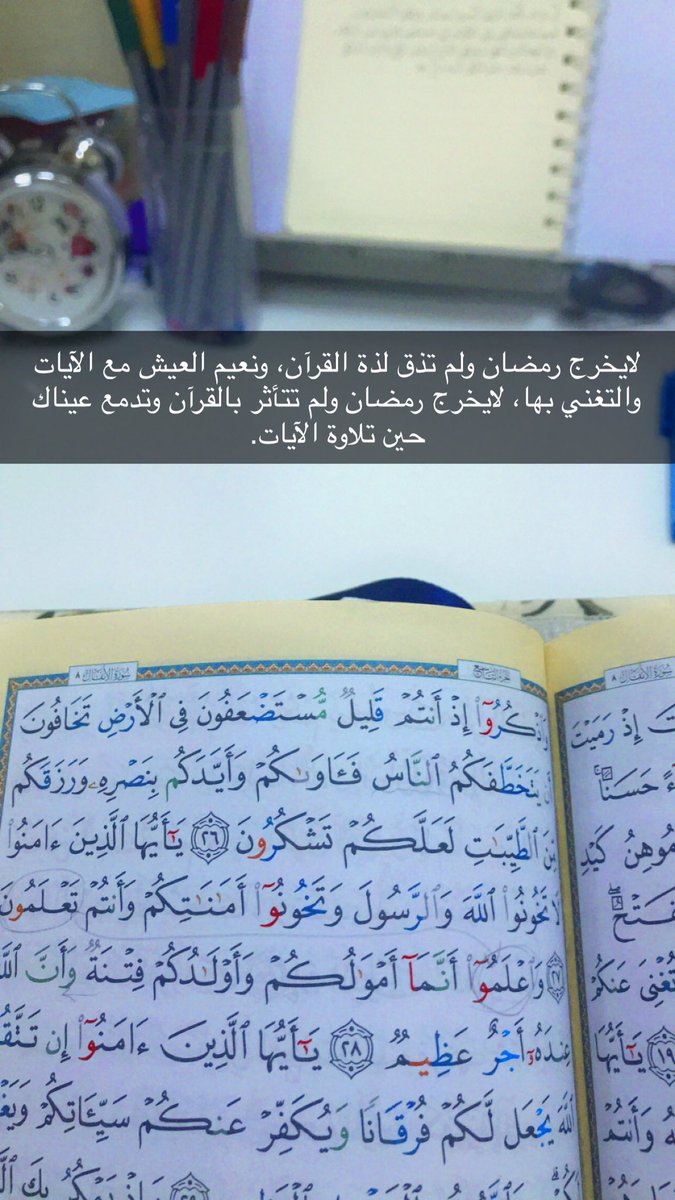 لايخرج رمضان ولم تذق لذة القرآن، ونعيم العيش مع الآيات
والتغني بها، لايخرج رمضان ولم تتأثر بالقرآن وتدمع عيناك
حين تلاوة الآيات.
الجزء التاسع
سورة الأنفال ٨
وَٱذْكُرُوٓا۟ إِذْ أَنتُمْ قَلِيلٌ مُّسْتَضْعَفُونَ فِى ٱلْأَرْضِ تَخَافُونَ
أَن يَتَخَطَّفَكُمُ ٱلنَّاسُ فَـَٔاوَىٰكُمْ وَأَيَّدَكُم بِنَصْرِهِۦ وَرَزَقَكُم
مِّنَ ٱلطَّيِّبَـٰتِ لَعَلَّكُمْ تَشْكُرُونَ ٢٦ يَـٰٓأَيُّهَا ٱلَّذِينَ ءَامَنُوا۟
لَا تَخُونُوا۟ ٱللَّهَ وَٱلرَّسُولَ وَتَخُونُوٓا۟ أَمَـٰنَـٰتِكُمْ وَأَنتُمْ تَعْلَمُونَ
٢٧ وَٱعْلَمُوٓا۟ أَنَّمَآ أَمْوَٰلُكُمْ وَأَوْلَـٰدُكُمْ فِتْنَةٌ وَأَنَّ ٱللَّهَ
عِندَهُۥٓ أَجْرٌ عَظِيمٌ ٢٨ يَـٰٓأَيُّهَا ٱلَّذِينَ ءَامَنُوٓا۟ إِن تَتَّقُوا۟
ٱللَّهَ يَجْعَل لَّكُمْ فُرْقَانًا وَيُكَفِّرْ عَنكُمْ سَيِّـَٔاتِكُمْ وَيَغْ
سورة الأنفال ٨
إِذْ رَمَيْتَ
حَسَنًا
مُوهِنُ كَيْدِ
تُغْنِىَ عَنكُمْ
١٩ يَـٰٓأَيُّهَا
وَأَنتُمْ